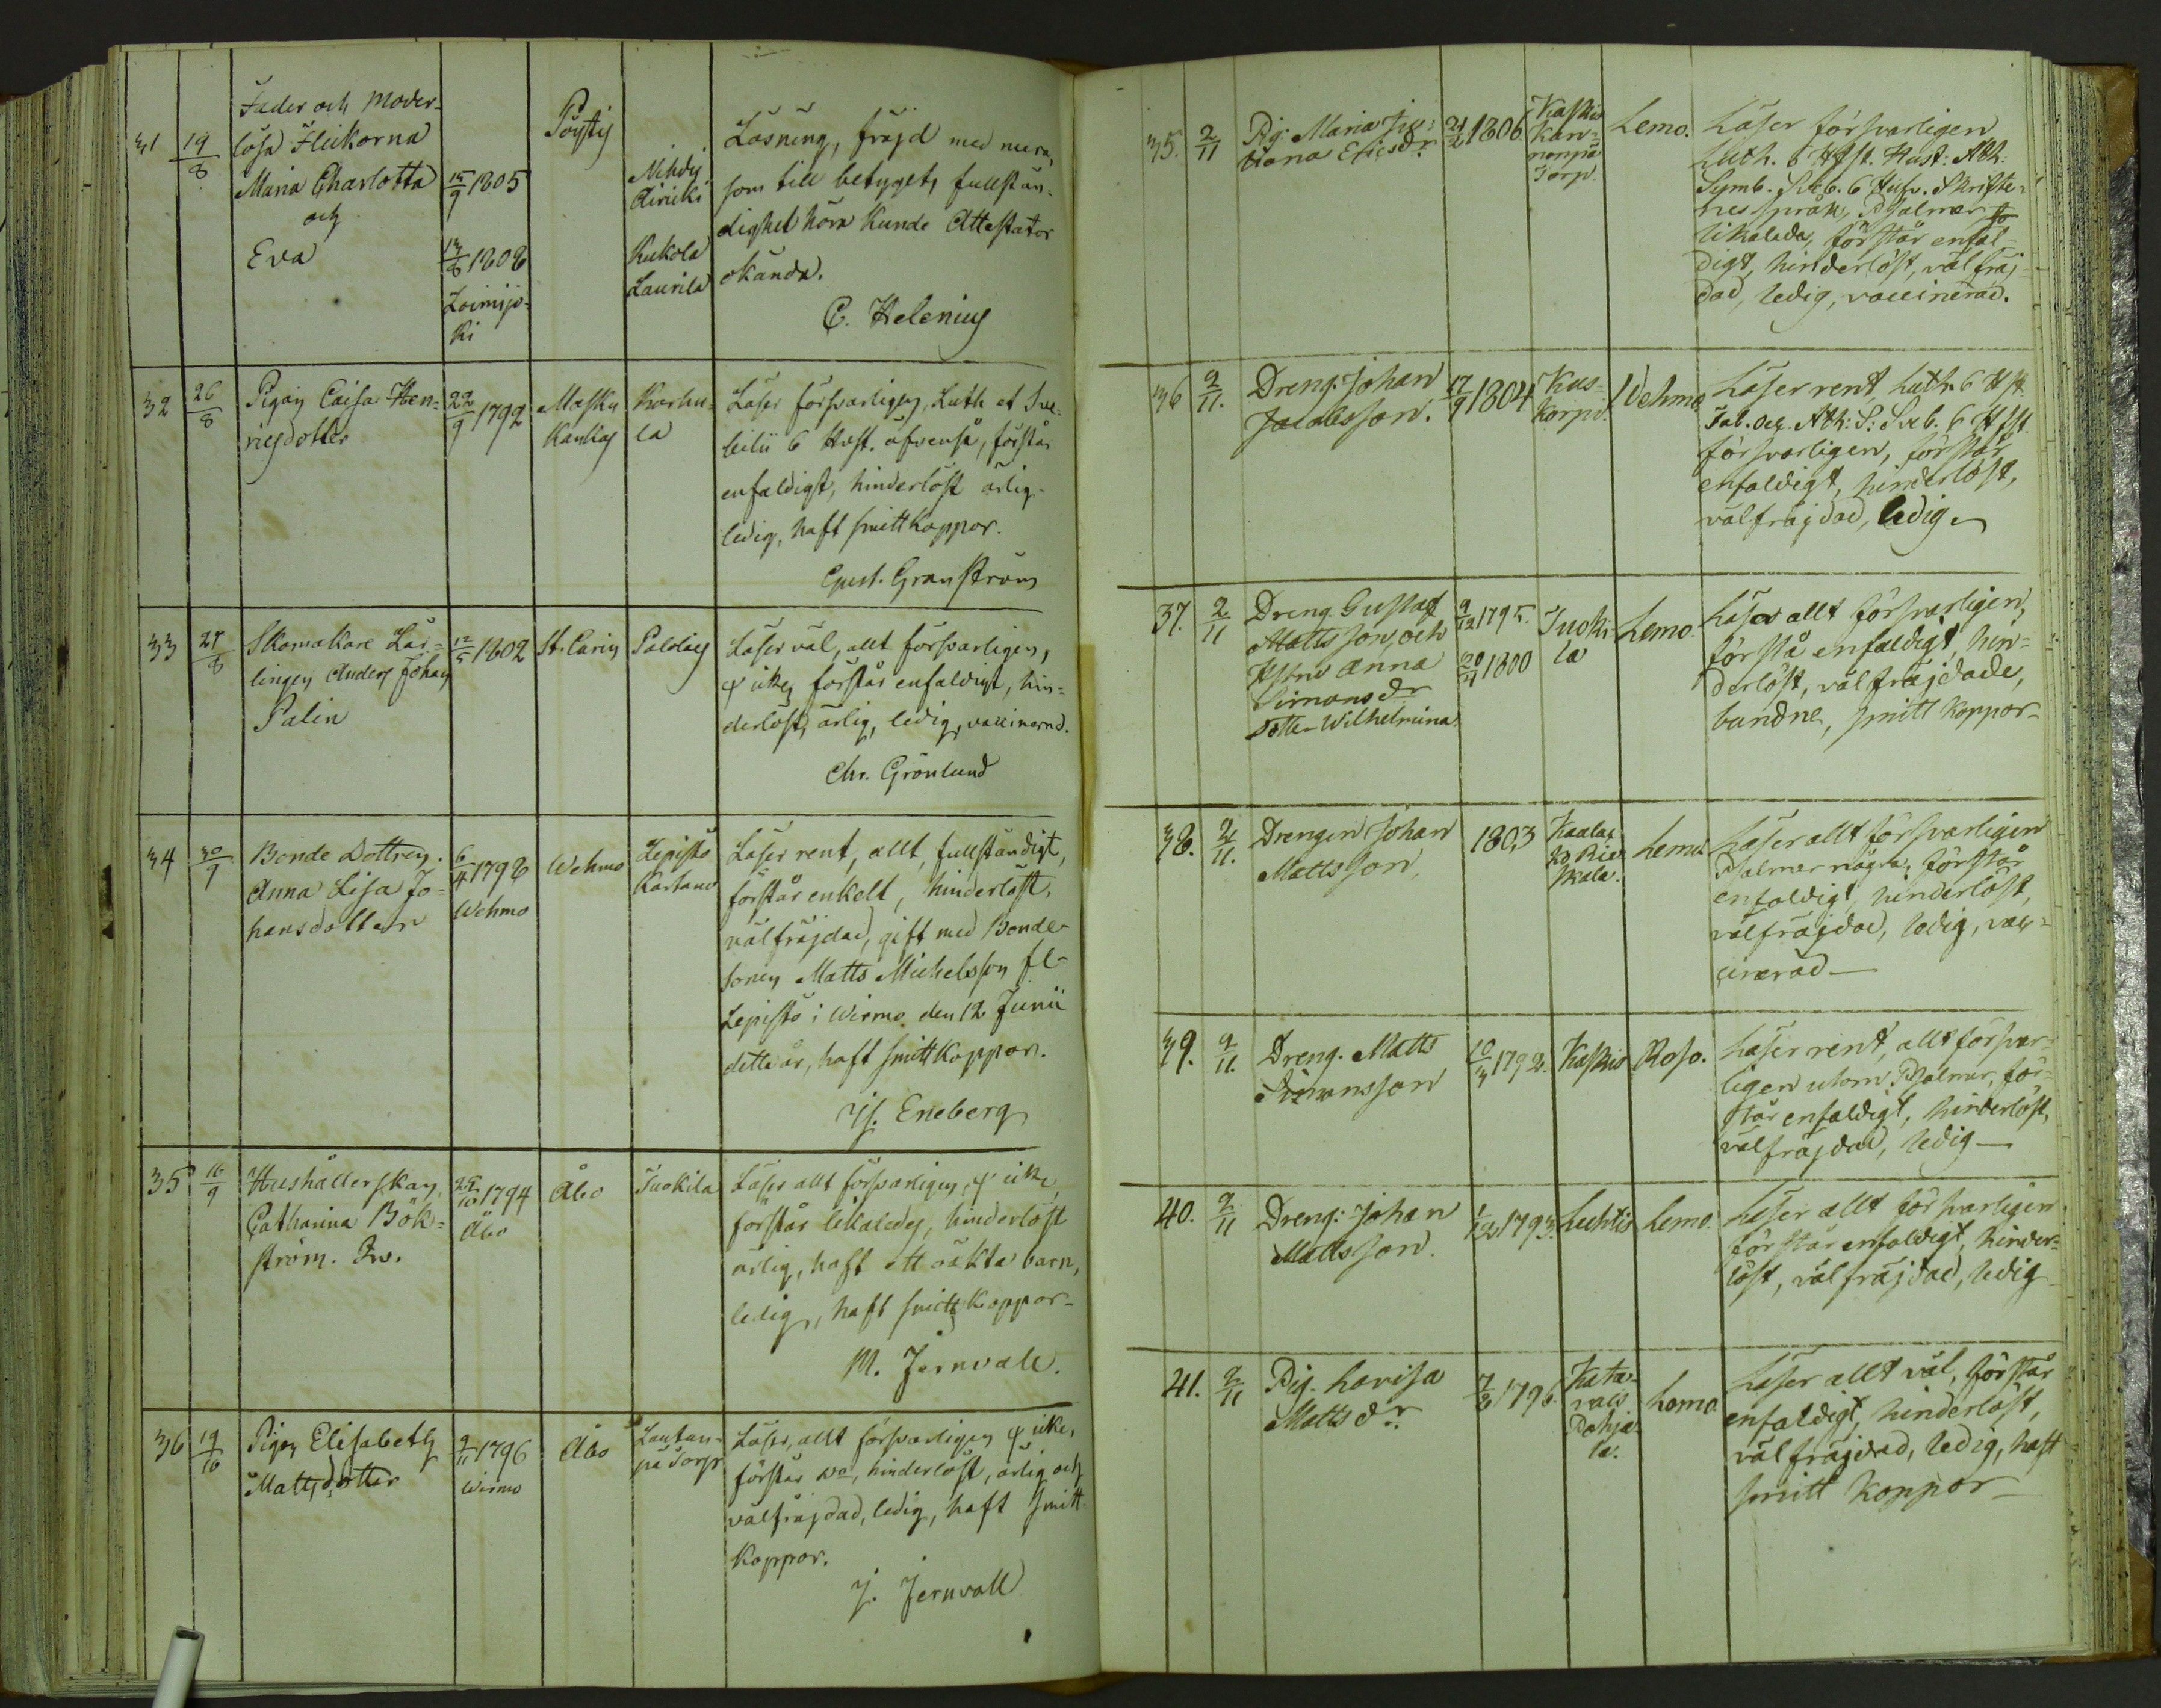 31 19/8 Fader och Moder-
lösa Flickorna
Maria Charlotta
och
Eva
15/9 1805
13/8 1808
Loimijo-
ki
Pöytis
Nihdis
Airikki
Kukola
Laurila
Läsning, fräjd med mera,
som till betygets fullstän-
dighet höra kunde Attestator
okända.
C. Helenius
32 26/8 Pigan Caisa Hen-
ricsdotter
22/9 1792
Masku
Kankas
Karhu-
la
Läser försvarligen, Luth et Sve-
bilii 6 Hvst. äfvenså, förstår
enfaldigt, hinderlöst ärlig-
ledig, haft smittkoppor.
Gust. Granström
33 27/8 Skomakare Lär-
lingen Anders Johan
Palin
12/5 1802
St. Carins
Paldais
Läser väl, allt försvarligen,
förstår enfaldigt, hin-
derlöst, ärlig, ledig, vaccinerad.
Chr. Grönlund
34 30/9 Bonde Dottren
Anna Lisa Jo-
hansdotter
6/4 1798
Wehmo
Wehmo
Lepistö
Kartano
Läser rent, allt, fullständigt,
förstår enkelt, hinderlöst,
välfräjdad, gift med Bonde-
sonen Matts Michelsson fl-
Lepistö i Wirmo den 12 Junii
detta år, haft smittkoppor.
Js. Eneberg
35 16/9 Hushållerskan,
Catharina Bök-
ström. Fr.
25/10 1794
Åbo
Åbo
Tuokila
Läser allt försvarligen
förstår likaledes, hinderlöst
ärlig, haft ett oäkta barn,
ledig, haft smittkoppor-
M. Jernvall.
36 19/10 Pigan Elisabeth
Mattsdotter
9/11 1796
Wirmo
Åbo
Lautan-
pä Torp
Läser, allt försvarligen
förstår do, hinderlöst, ärlig och
välfräjdad, ledig, haft smitt
koppor.
J. Jernvall
35. 2/11 Pig: Maria Jus-
tiana Ericsdr
21/2 1806.
Kaskis
Kan-
nonpä
Torp.
Lemo.
Läser försvarligen
Luth. 6 Hfst. Hust: Ath:
Symb. Sveb. 6 Hufv. Skrifte-
nes språk, Psalmer
likaleda, förstår enfal-
digt, hinderlöst, välfräj-
dad, ledig, vaccinerad.
36 2/11. Dreng: Johan
Jacobsson.
17/9 1804
Kus-
korpi.
Wehmo
Läser rent, Luth 6 Hst
Tab. och Ath: S: Sveb. 6 Hfst
försvarligen, förstår
enfaldigt, hinderlöst,
välfräjdad, ledig.
37. 2/11 Dreng Gustaf
Mattsson, och
Hstru Anna
Simonsdr
dotter Wilhelmina
9/12 1795.
20/4 1800
Tuoki-
la
Lemo.
Läser allt försvarligen,
förstå enfaldigt, hin-
derlöst, välfräjdade,
bundne, smitt koppor-
38. 2/11. Drengen Johan
Mattsson,
1803
Kaalas
Ko Ries
skala.
Lemo.
Läser allt försvarligen
Psalmer några, förstår
enfaldigt, hinderlöst,
välfräjdad, ledig, vac-
cinerad—
39. 2/11. Dreng. Matts
Simonsson
10/3 1792.
Kaskis
Roso.
Läser rent, allt försvar-
ligen utom Psalmer, för-
står enfaldigt, hinderlöst,
välfräjdad, ledig—
40. 2/11 Dreng: Johan
Mattsson.
1/12 1793.
Luhtis
Lemo.
Läser allt försvarligen
förstår enfaldigt, hinder-
löst, välfräjdad, ledig
41. 2/11 Pig. Lovisa
Mattsdr.
7/8 1796.
Kata-
vais
Pohja-
la.
Lemo.
Läser allt väl, förstår
enfaldigt, hinderlöst,
välfräjdad, ledig, haft
smitt koppor—